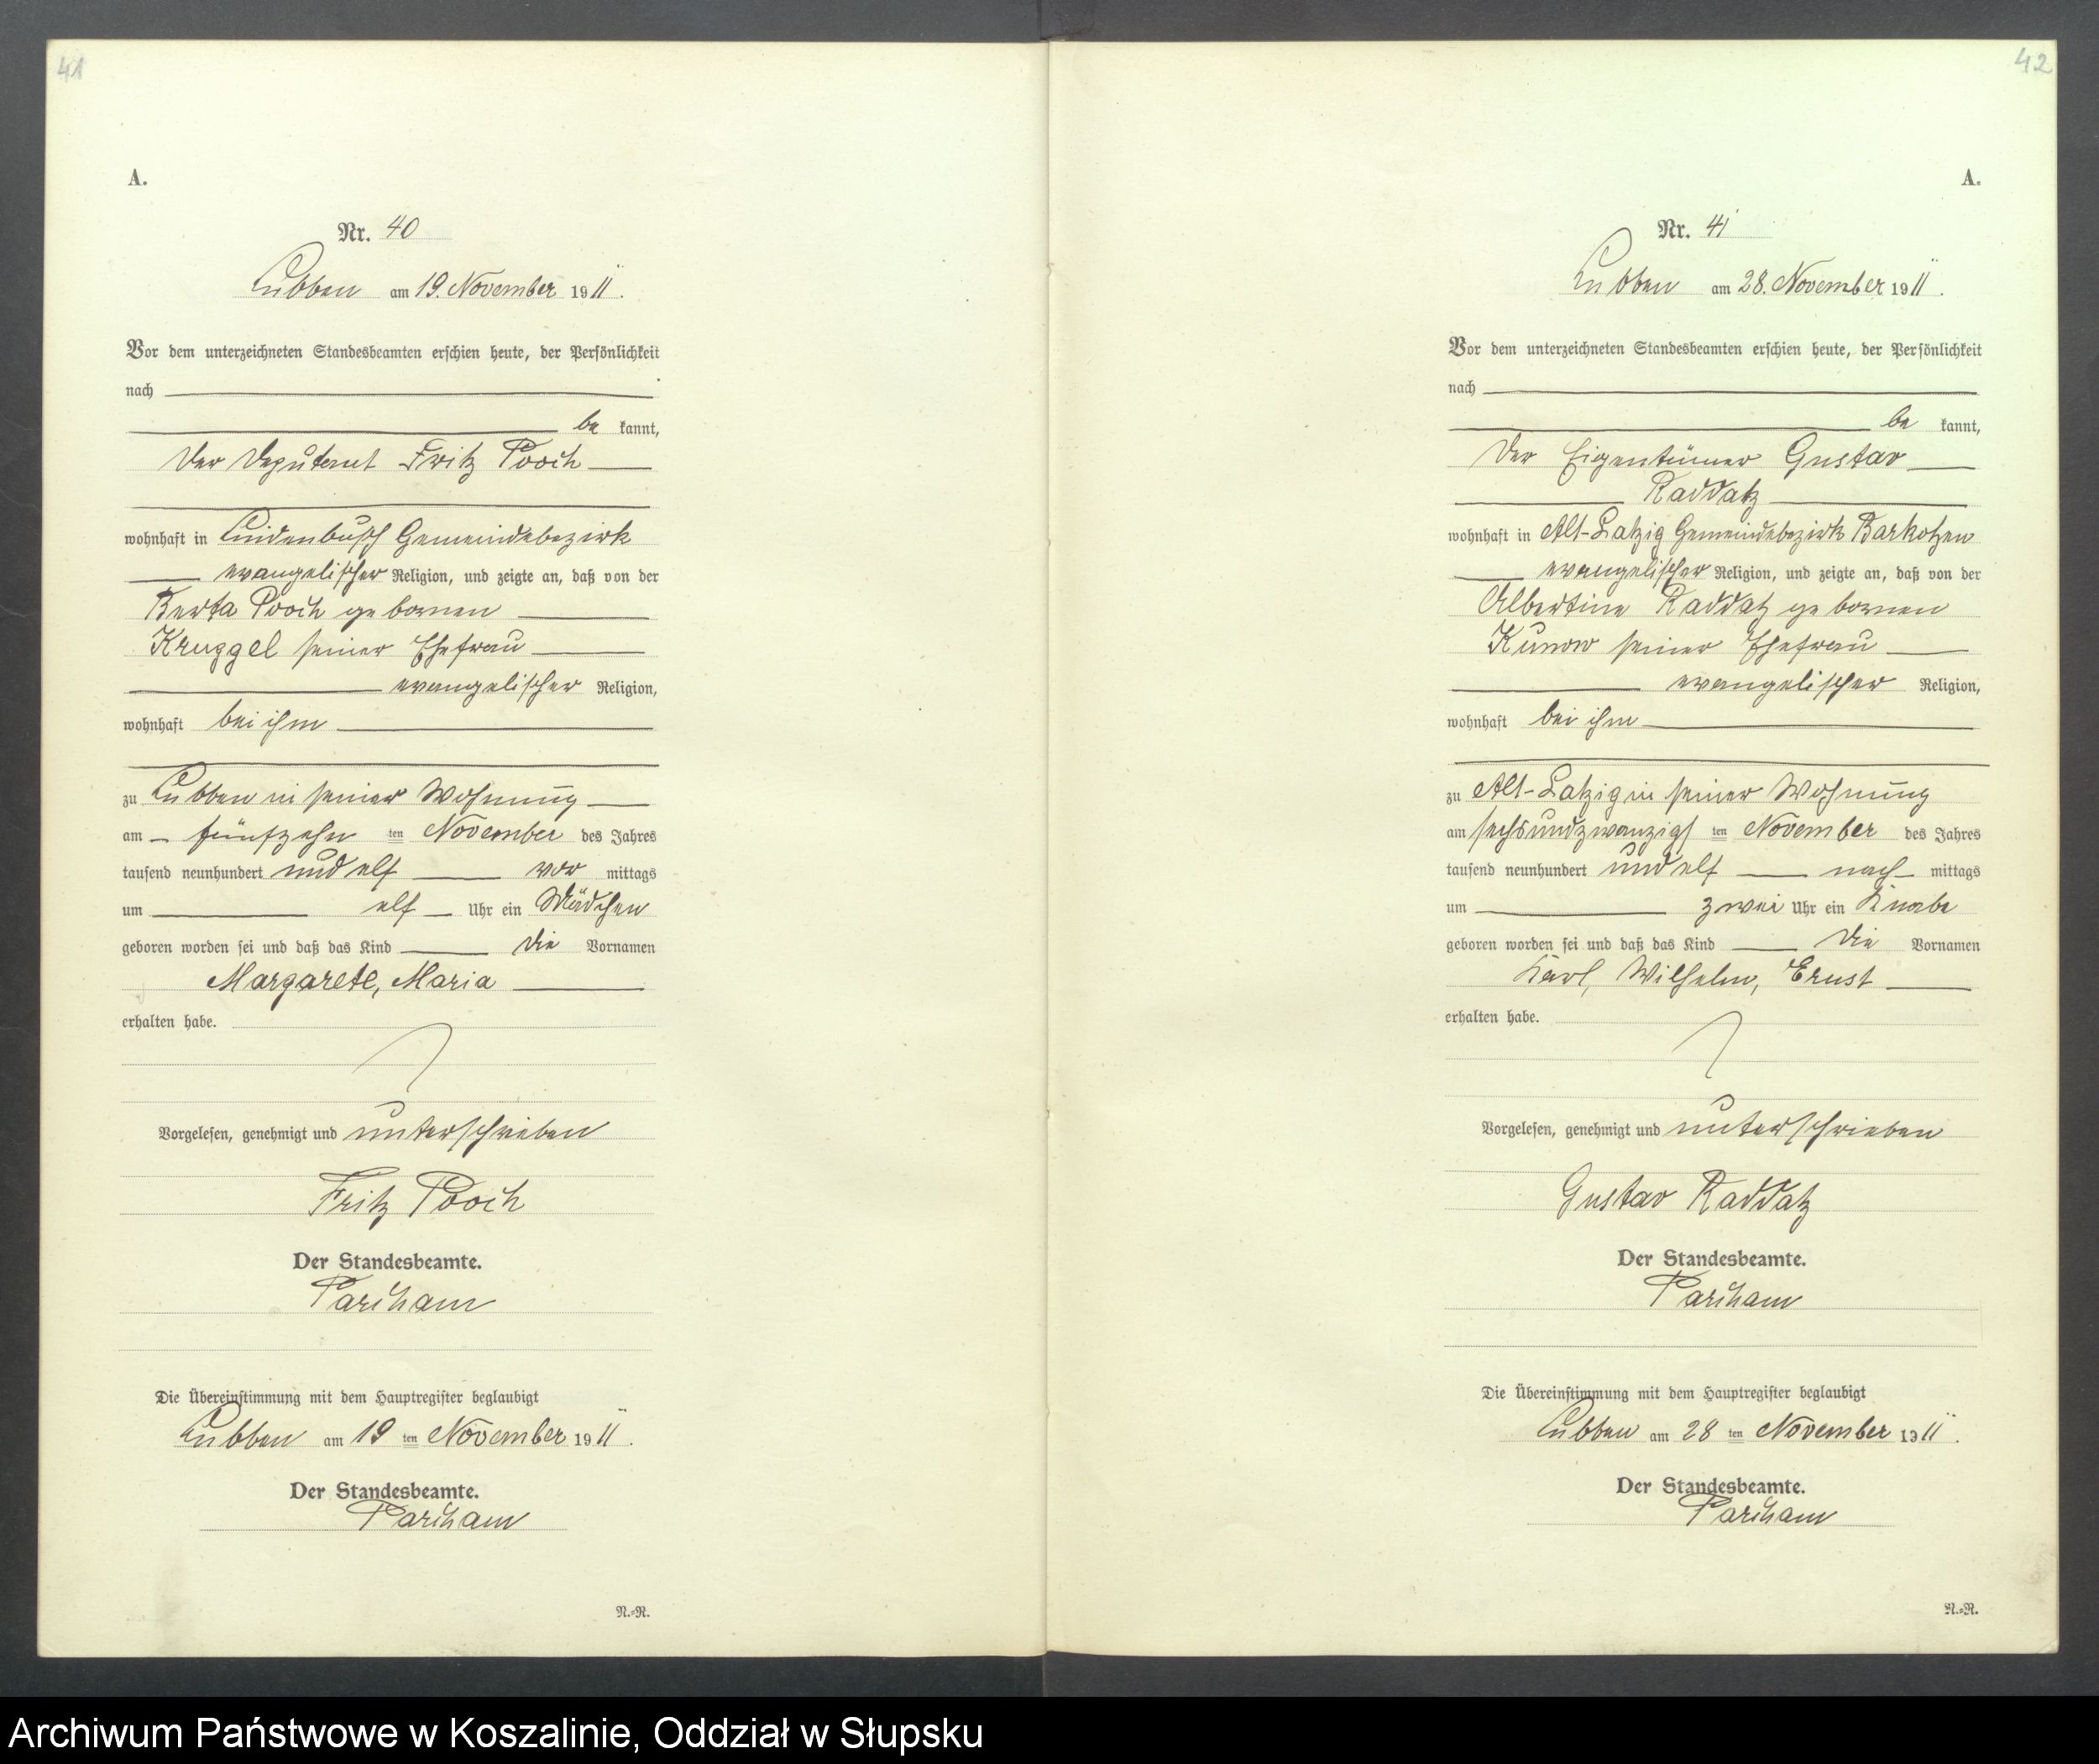 41
A.
Nr. 40
Lubben am 19. November 1911.
Vor dem unterzeichneten Standesbeamten erschien heute, der Persönlichkeit
nach
be kannt,
der Deputant Fritz Pooch
wohnhaft in Lindenbusch Gemeindebezirk
evangelischer Religion, und zeigte an, daß von der
Berta Pooch gebornen
Kruggel seiner Ehefrau
evangelischer Religion,
wohnhaft bei ihm
zu Lubben in seiner Wohnung
am fünfzehn ten November des Jahres
tausend neunhundert und elf vor mittags
um elf Uhr ein Mädchen
geboren worden sei und daß das Kind die Vornamen
Margarete, Maria
erhalten habe.
Vorgelesen, genehmigt und unterschrieben
Fritz Pooch
Der Standesbeamte.
Parcham
Die Übereinstimmung mit dem Hauptregister beglaubigt
Lubben am 19 ten November 1911.
Der Standesbeamte.
Parcham
N.=R.
42
A.
Nr. 41
Lubben am 28. November 1911.
Vor dem unterzeichneten Standesbeamten erschien heute, der Persönlichkeit
nach
be kannt,
der Eigentümer Gustav
Raddatz
wohnhaft in Alt-Latzig Gemeindebezirk Barkotzen
evangelischer Religion, und zeigte an, daß von der
Albertine Raddatz gebornen
Kunow seiner Ehefrau
evangelischer Religion,
wohnhaft bei ihm
zu Alt-Latzig in seiner Wohnung
am sechsundzwanzigs ten November des Jahres
tausend neunhundert und elf nach mittags
um zwei Uhr ein Knabe
geboren worden sei und daß das Kind die Vornamen
Karl, Wilhelm, Ernst
erhalten habe.
Vorgelesen, genehmigt und unterschrieben
Gustav Raddatz
Der Standesbeamte.
Parcham
Die Übereinstimmung mit dem Hauptregister beglaubigt
Lubben am 28 ten November 1911.
Der Standesbeamte.
Parcham
N.=R.
Archiwum Państwowe w Koszalinie, Oddział w Słupsku